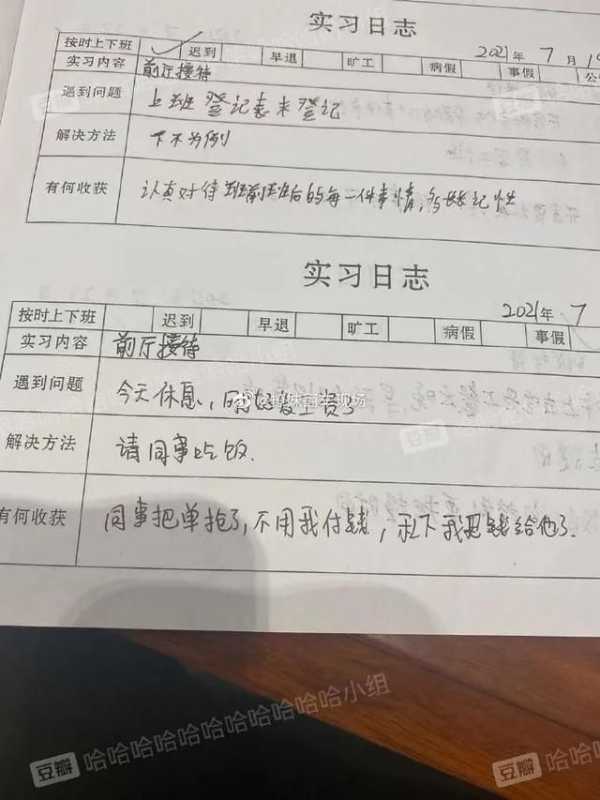 实习日志
2021年 7 月 19
按时上下班 ✓ 迟到 早退 旷工 病假 事假 公
实习内容 前厅接待
遇到问题 上班登记表未登记
解决方法 下不为例
有何收获 认真对待班前班后的每一件事情,多长记性
实习日志
2021年 7
按时上下班 迟到 早退 旷工 病假 事假
实习内容 前厅接待
遇到问题 今天休息,同时也发工资了
解决方法 请同事吃饭.
有何收获 同事把单抢了,不用我付钱,私下我把钱给他了.
豆瓣 哈哈哈哈哈哈哈哈哈哈小组
豆瓣 哈哈哈哈哈哈